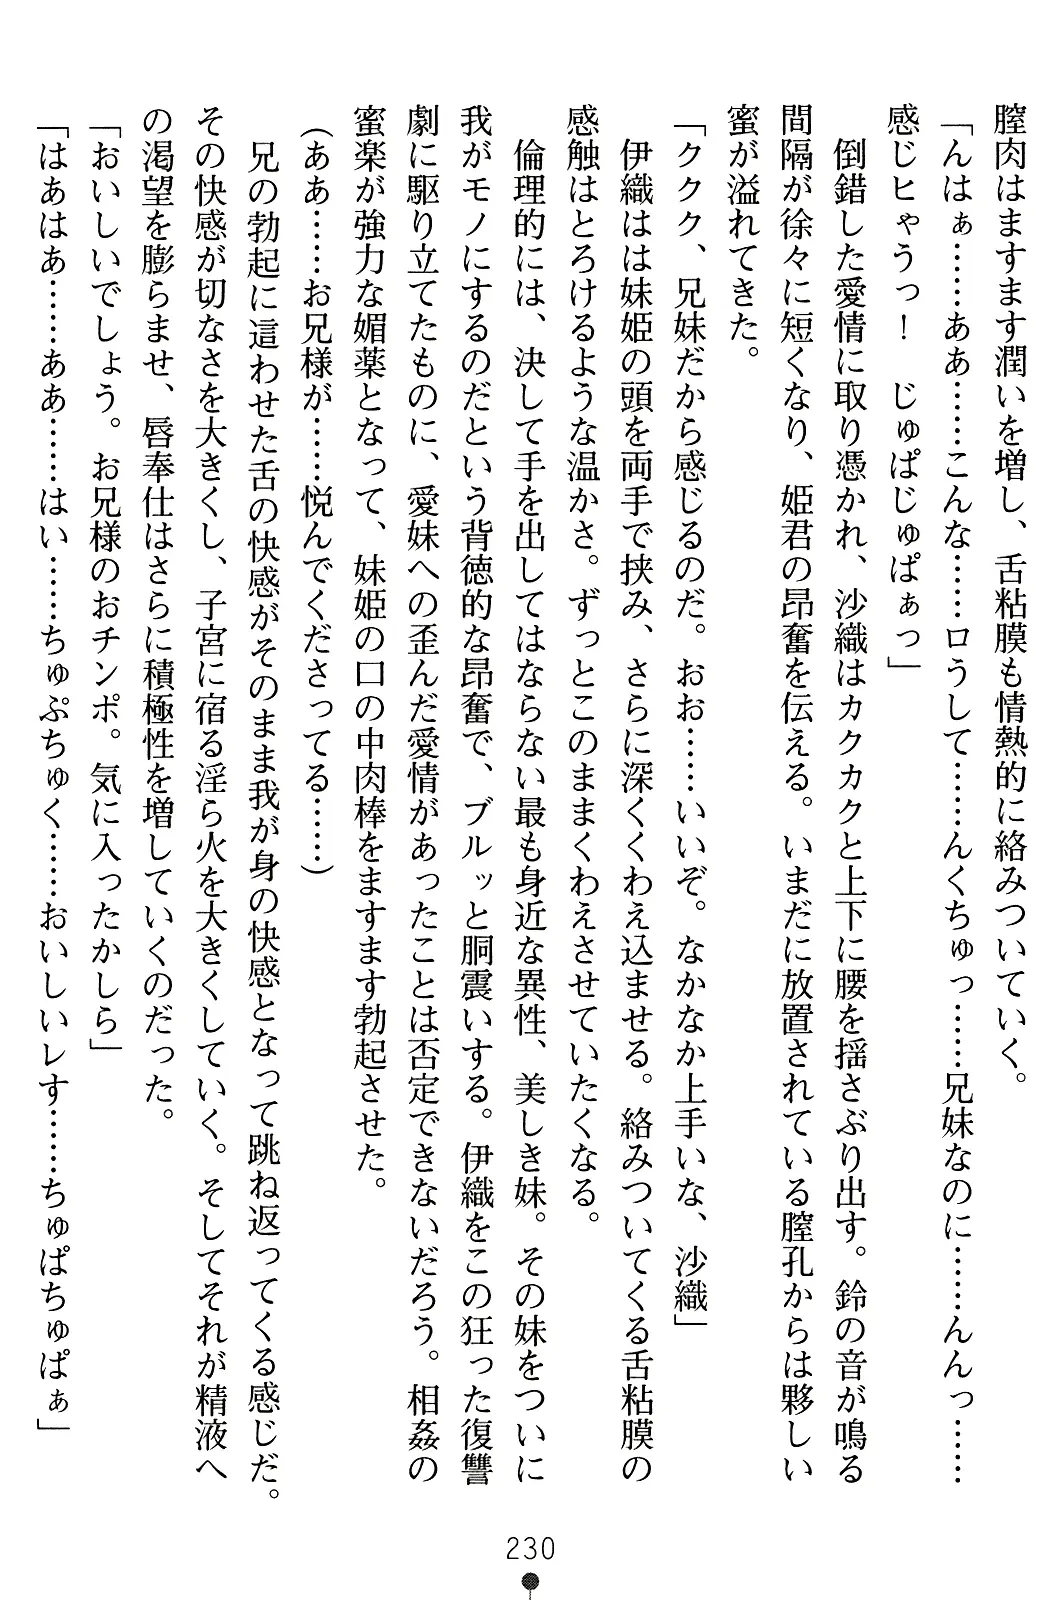 膣肉はますます潤いを増し、舌粘膜も情熱的に絡みついていく。
「んはぁ……ああ……こんな……ロうして……んくちゅっ……兄妹なのに……んんっ……
感じヒゃうっ！　じゅぱじゅぱぁっ」
倒錯した愛情に取り憑かれ、沙織はカクカクと上下に腰を揺さぶり出す。鈴の音が鳴る
間隔が徐々に短くなり、姫君の昂奮を伝える。いまだに放置されている膣孔からは夥しい
蜜が溢れてきた。
「ククク、兄妹だから感じるのだ。おお……いいぞ。なかなか上手いな、沙織」
伊織はは妹姫の頭を両手で挟み、さらに深くくわえ込ませる。絡みついてくる舌粘膜の
感触はとろけるような温かさ。ずっとこのままくわえさせていたくなる。
倫理的には、決して手を出してはならない最も身近な異性、美しき妹。その妹をついに
我がモノにするのだという背徳的な昂奮で、ブルッと胴震いする。伊織をこの狂った復讐
劇に駆り立てたものに、愛妹への歪んだ愛情があったことは否定できないだろう。相姦の
蜜楽が強力な媚薬となって、妹姫の口の中肉棒をますます勃起させた。
(ああ……お兄様が……悦んでくださってる……)
兄の勃起に這わせた舌の快感がそのまま我が身の快感となって跳ね返ってくる感じだ。
その快感が切なさを大きくし、子宮に宿る淫ら火を大きくしていく。そしてそれが精液へ
の渇望を膨らませ、唇奉仕はさらに積極性を増していくのだった。
「おいしいでしょう。お兄様のおチンポ。気に入ったかしら」
「はあはあ……ああ……はい……ちゅぷちゅく……おいしいレす……ちゅぱちゅぱぁ」
230